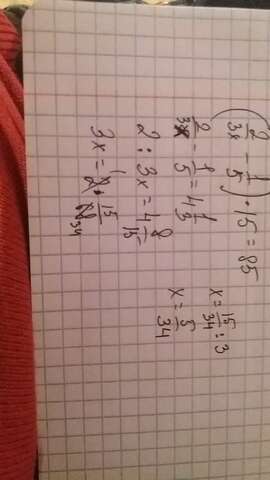 (2/3x - 1/5) · 15 = 85
2/3x - 1/5 = 4 1/3
2 : 3x = 4 8/15
3x = 2 · 15/68 1 34
x = 15/34 : 3
x = 5/34